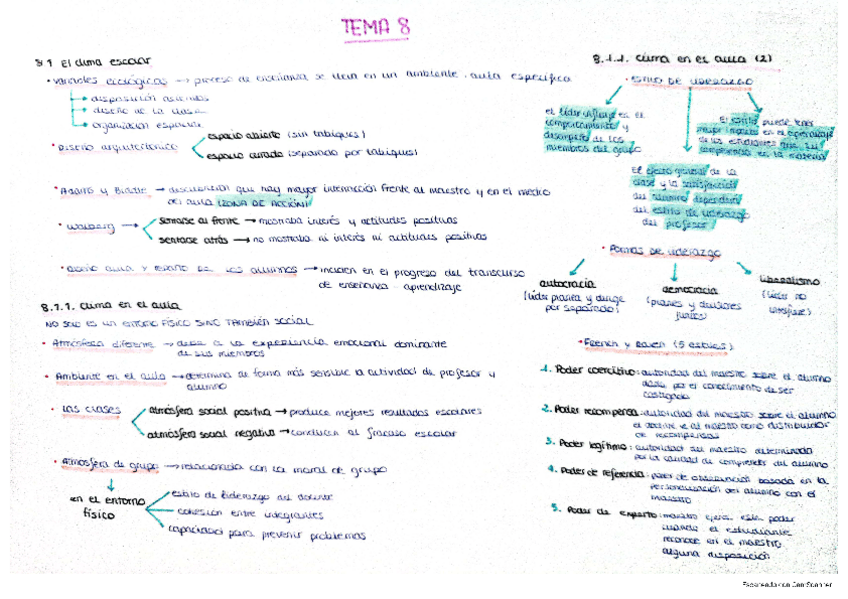 TEMA 8
8.1 El clima escolar
• Variables ecológicas → proceso de enseñanza se lleva en un ambiente. aula específica
→ disposición asientos
→ diseño de la clase
→ organización espacial
• Diseño arquitectónico
espacio abierto (sin tabiques)
espacio cerrado (separado por tabiques)
• Adams y Biddle → descubrieron que hay mayor interacción frente al maestro y en el medio
del aula (ZONA DE ACCIÓN)
• Walberg →
sentarse al frente → mostraba interés y actitudes positivas
sentarse atrás → no mostraba ni interés ni actitudes positivas
aula y de los alumnos → inciden en el progreso del transcurso
de enseñanza - aprendizaje
8.1.1. Clima en el aula
NO SOLO ES UN ENTORNO FÍSICO SINO TAMBIÉN SOCIAL
• Atmósfera diferente → debe a la experiencia emocional dominante
de sus miembros
• Ambiente en el aula → determina de forma más sensible la actividad de profesor y
alumno
• Las clases
atmósfera social positiva → produce mejores resultados escolares
atmósfera social negativa → conducen al fracaso escolar
• Atmósfera de grupo → relacionada con la moral de grupo
en el entorno
físico
estilo de liderazgo del docente
cohesión entre integrantes
capacidad para prevenir problemas
8.1.1. Clima en el aula (2)
• ESTILO DE LIDERAZGO
El líder influye en el
comportamiento y
desempeño de los
miembros del grupo
El efecto general de la
clase y la satisfacción
del alumno dependerá
del estilo de liderazgo
del profesor
El estilo puede tener
mayor impacto en el aprendizaje
de los estudiantes que su
competencia en la materia
• Formas de liderazgo
autocracia
(líder planea y dirige
por separado)
democracia
(planes y decisiones
juntos)
liberalismo
(líder no
interfiere)
• French y Raven (5 estilos)
1. Poder coercitivo: autoridad del maestro sobre el alumno
dada por el conocimiento de ser
castigado
2. Poder recompensa: autoridad del maestro sobre el alumno
al maestro como distribuidor
de recompensas
3. Poder legítimo: autoridad del maestro determinada
por la calidad de comprender del alumno
4. Poder de referencia: poder de basada en la
personalización del alumno con el
maestro
5. Poder de experto: maestro ejerce este poder
cuando el estudiante
reconoce en el maestro
alguna disposición
Escaneado con CamScanner